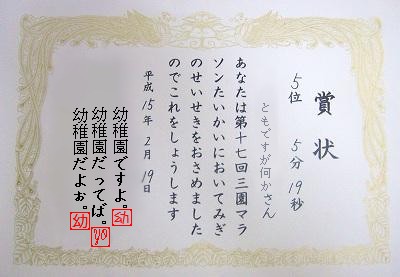 賞状
5位 5分19秒
ともですが何かさん
あなたは第十七回三園マラ
ソンたいかいにおいてみぎ
のせいせきをおさめました
のでこれをしょうします
平成15年2月19日
幼稚園ですよ。幼
幼稚園だってば。yo
幼稚園だよぉ。幼